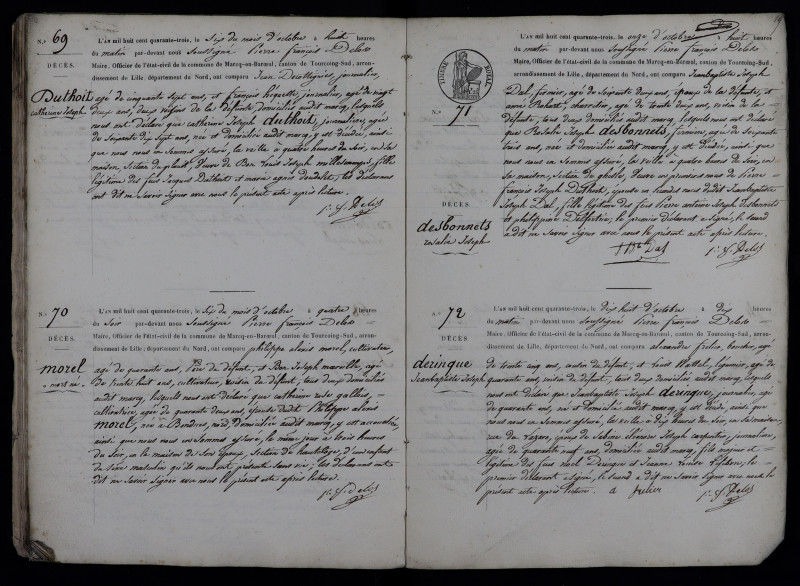 N.° 69
DÉCÈS.
Duthoit
catherine Joseph
L'AN mil huit cent quarante-trois, le Six du mois d'octobre à huit heures
du matin par-devant nous Soussigné Pierre François Delos
Maire, Officier de l'état-civil de la commune de Marcq-en-Barœul, canton de Tourcoing-Sud, arron-
dissement de Lille, département du Nord, ont comparu Jean journalier,
agé de cinquante sept ans, et françois journalier, agé de vingt
deux ans, deux voisins de la défunte domiciliés audit marcq, lesquels
nous ont déclaré que catherine Joseph duthoit, journalière, agée
de Soixante dix Sept ans, née et domiciliée audit marcq, y est décédée, ainsi
que nous nous en Sommes assuré, la veille à quatre heures du Soir, en sa
maison, Section du plouit, veuve de Louis Joseph fille
légitime des feus Jacques Duthoit et marie agnès les déclarans
ont dit ne Savoir signer avec nous le présent acte après lecture.
P. F. Delos
N.° 70
DÉCÈS.
morel
mort né
L'AN mil huit cent quarante-trois, le Six du mois d'octobre à quatre heures
du Soir par-devant nous Soussigné Pierre François Delos
Maire, Officier de l'état-civil de la commune de Marcq-en-Barœul, canton de Tourcoing-Sud, arron-
dissement de Lille, département du Nord, ont comparu philippe alexis morel, cultivateur,
agé de quarante ans, Père du défunt, et Joseph agé
de trente huit ans, cultivateur, voisin du défunt, tous deux domiciliés
audit marcq, lesquels nous ont déclaré que catherine rose
cultivatrice, agée de quarante deux ans, épouse dudit Philippe alexis
morel, née à Bondues, domiciliée audit marcq, y est accouchée,
ainsi que nous nous en Sommes assuré, le même jour à trois heures
du Soir, en la maison de Son époux, Section de d'un enfant
du Sexe masculin qu'ils nous ont présenté Sans vie; les déclarans ont
dit ne Savoir signer avec nous le présent acte après lecture.
P. F. Delos
19
TIMBRE ROYAL
N.° 71
DÉCÈS.
desbonnets
rosalie Joseph
L'AN mil huit cent quarante-trois, le onze d'octobre à huit heures
du matin par-devant nous Soussigné Pierre François Delos
Maire, Officier de l'état-civil de la commune de Marcq-en-Barœul, canton de Tourcoing-Sud,
arrondissement de Lille, département du Nord, ont comparu Jeanbaptiste Joseph
Dal, fermier, agé de Soixante deux ans, époux de la défunte, et
aimé agé de trente deux ans, voisin de la
défunte, tous deux domiciliés audit marcq, lesquels nous ont déclaré
que Rosalie Joseph desbonnets, fermière, agée de Soixante
trois ans, née et domiciliée audit marcq, y est décédée, ainsi que
nous nous en Sommes assuré, la veille à quatre heures du Soir, en
Sa maison, Section de veuve en premières noces de Pierre
françois Joseph épouse en Secondes noces dudit Jeanbaptiste
Joseph Dal, fille légitime des feus Pierre antoine Joseph Desbonnets
et philippine le premier déclarant a signé, le Second
a dit ne Savoir signer avec nous le présent acte après lecture.
J Bte Dal P. F. Delos
N.° 72
DÉCÈS.
deringue
Jeanbaptiste Joseph
L'AN mil huit cent quarante-trois, le dix huit d'octobre à dix heures
du matin par-devant nous Soussigné Pierre François Delos
Maire, Officier de l'état-civil de la commune de Marcq-en-Barœul, canton de Tourcoing-Sud, arron-
dissement de Lille, département du Nord, ont comparu alexandre boucher, agé
de trente cinq ans, cousin du défunt, et Louis agé de
quarante ans, voisin du défunt, tous deux domiciliés audit marcq, lesquels
nous ont déclaré que Jeanbaptiste Joseph deringue, journalier, agé
de quarante ans, né et domicilié audit marcq, y est décédé, ainsi que
nous nous en Sommes assuré, la veille à dix heures du Soir, en Sa maison,
rue du Lazaro, époux de Sabine Joseph carpentier, journalière,
agée de quarante neuf ans, domiciliée audit marcq, fils majeur et
légitime des feus Noel Deringue et Jeanne Louise le
premier déclarant a signé, le Second a dit ne Savoir signer avec nous le
présent acte après lecture.
P. F. Delos